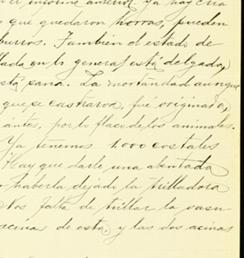 el informe anterior ya hay cria
que quedaron horras, pueden
burros. Tambien el estado de
en lo general está delgado,
está sana. La mortandad aunque
que se castraron, fue originado,
antes, por lo flaco de los animales.
Ya tenemos 1.000 costales
Hay que darle una aventada
haberla dejado la trilladora
Nos falta de trillar la
de esto, y las dos acinas